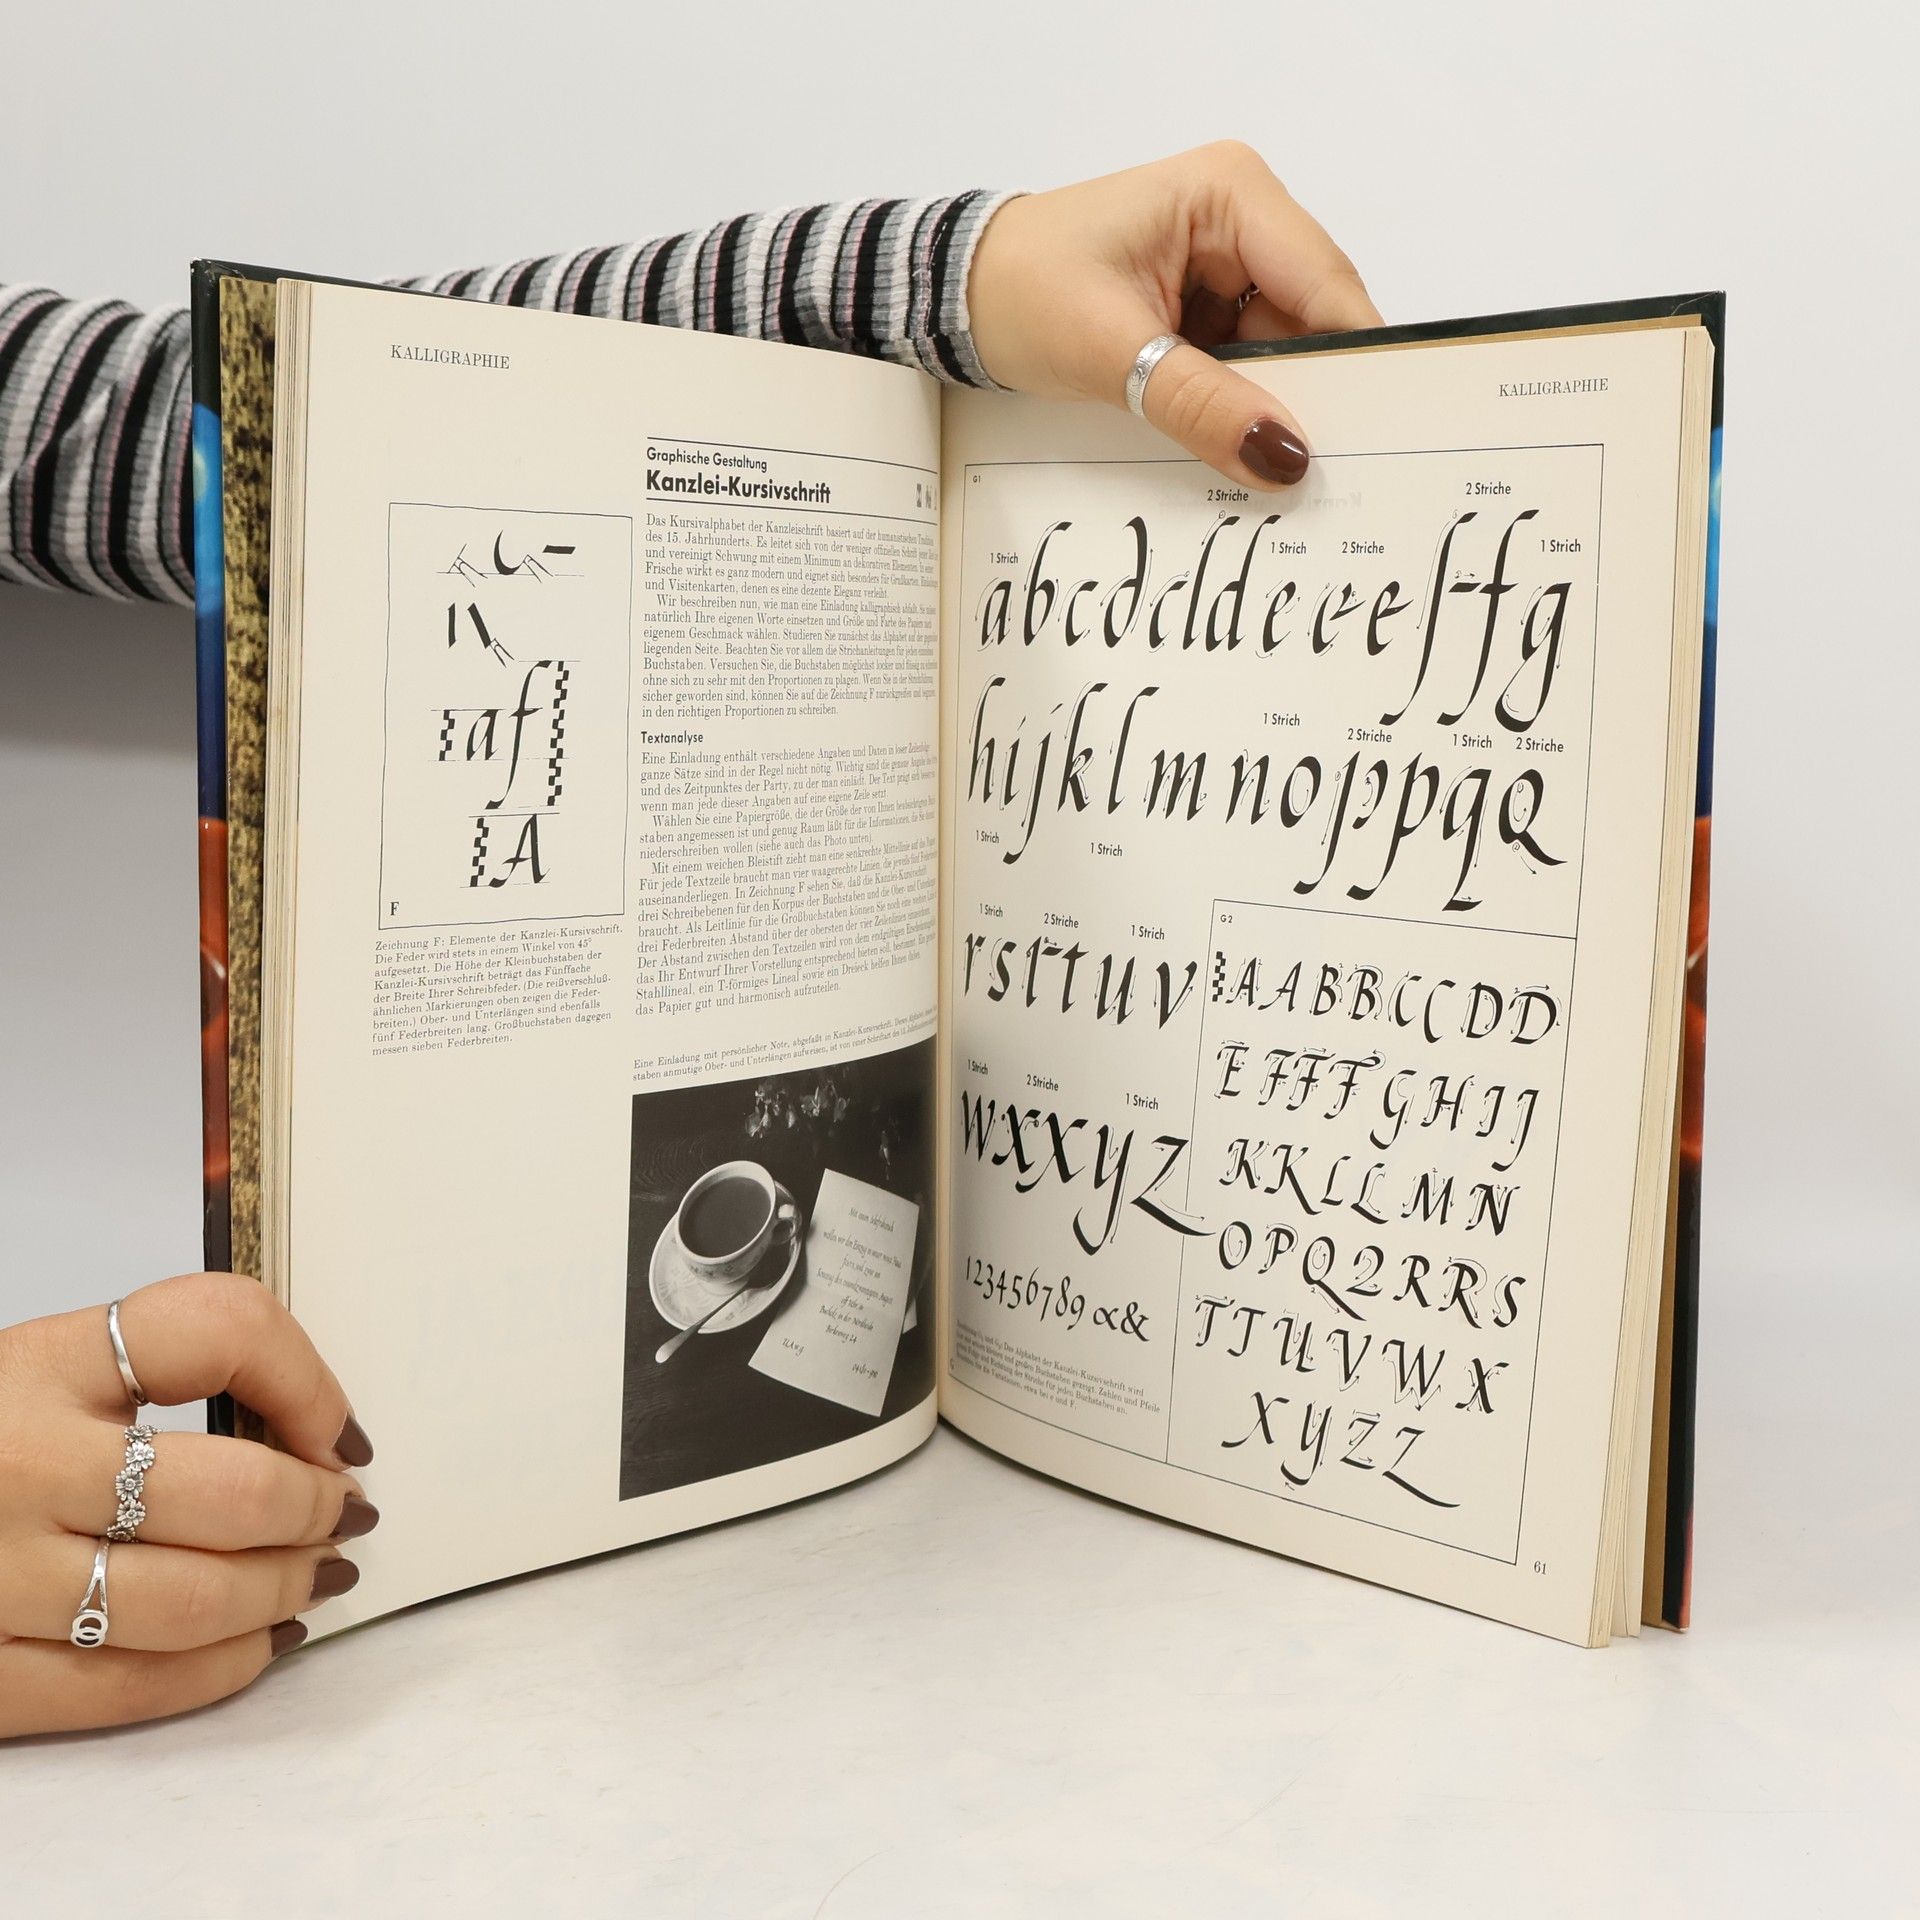 KALLIGRAPHIE
Graphische Gestaltung
Kanzlei-Kursivschrift
Das Kursivalphabet der Kanzleischrift basiert auf der humanistischen Tradition
des 15. Jahrhunderts. Es leitet sich von der weniger offiziellen Schrift jener Zeit
und vereinigt Schwung mit einem Minimum an dekorativen Elementen. In seiner
Frische wirkt es ganz modern und eignet sich besonders für Grußkarten,
und Visitenkarten, denen es eine dezente Eleganz verleiht.
Wir beschreiben nun, wie man eine Einladung kalligraphisch abfaßt. Sie
natürlich Ihre eigenen Worte einsetzen und Größe und Farbe des Papiers nach
eigenem Geschmack wählen. Studieren Sie zunächst das Alphabet auf der gegenüber-
liegenden Seite. Beachten Sie vor allem die Strichanleitungen für jeden einzelnen
Buchstaben. Versuchen Sie, die Buchstaben möglichst locker und flüssig zu schreiben
ohne sich zu sehr mit den Proportionen zu plagen. Wenn Sie in der Strichführung
sicher geworden sind, können Sie auf die Zeichnung F zurückgreifen und beginnen,
in den richtigen Proportionen zu schreiben.
Textanalyse
Eine Einladung enthält verschiedene Angaben und Daten in loser Zeilenfolge
ganze Sätze sind in der Regel nicht nötig. Wichtig sind die genaue Angabe des Ortes
und des Zeitpunktes der Party, zu der man einlädt. Der Text prägt sich besser ein
wenn man jede dieser Angaben auf eine eigene Zeile setzt.
Wählen Sie eine Papiergröße, die der Größe der von Ihnen beabsichtigten Buch-
staben angemessen ist und genug Raum läßt für die Informationen, die Sie darauf
niederschreiben wollen (siehe auch das Photo unten).
Mit einem weichen Bleistift zieht man eine senkrechte Mittellinie auf das Papier
Für jede Textzeile braucht man vier waagerechte Linien, die jeweils fünf Federbreiten
auseinanderliegen. In Zeichnung F sehen Sie, daß die Kanzlei-Kursivschrift
drei Schreibebenen für den Korpus der Buchstaben und die Ober- und Unterlängen
braucht. Als Leitlinie für die Großbuchstaben können Sie noch eine weitere Linie
drei Federbreiten Abstand über der obersten der vier Zeilenlinien einzeichnen.
Der Abstand zwischen den Textzeilen wird von dem endgültigen Erscheinungsbild
das Ihr Entwurf Ihrer Vorstellung entsprechend bieten soll, bestimmt. Ein
Stahllineal, ein T-förmiges Lineal sowie ein Dreieck helfen Ihnen dabei,
das Papier gut und harmonisch aufzuteilen.
a f
A
F
Zeichnung F: Elemente der Kanzlei-Kursivschrift.
Die Feder wird stets in einem Winkel von 45°
aufgesetzt. Die Höhe der Kleinbuchstaben der
Kanzlei-Kursivschrift beträgt das Fünffache
der Breite Ihrer Schreibfeder. (Die reißverschluß-
ähnlichen Markierungen oben zeigen die Feder-
breiten.) Ober- und Unterlängen sind ebenfalls
fünf Federbreiten lang. Großbuchstaben dagegen
messen sieben Federbreiten.
Eine Einladung mit persönlicher Note, abgefaßt in Kanzlei-Kursivschrift. Dieses Alphabet, dessen
staben anmutige Ober- und Unterlängen aufweisen, ist von einer Schriftart des 15. Jahrhunderts
wollen wir den Einzug in unser neues Haus
feiern, und zwar am
Sonntag, den zweiundzwanzigsten August
Buchholz in der Nordheide
Birkenweg 24
U.A.w.g.
KALLIGRAPHIE
G1
2 Striche 2 Striche
1 Strich 1 Strich 2 Striche 1 Strich
a b c d cl d e e e e f f g
1 Strich 2 Striche 1 Strich 2 Striche
h i j k l m n o p p q Q
1 Strich 1 Strich
1 Strich 2 Striche 1 Strich
r s t t u v
1 Strich 2 Striche 1 Strich
w x x y z
1 2 3 4 5 6 7 8 9 & &
Zeichnung G1 und G2: Das Alphabet der Kanzlei-Kursivschrift wird
hier mit seinen kleinen und großen Buchstaben gezeigt. Zahlen und Pfeile
geben Folge und Richtung der Striche für jeden Buchstaben an.
Beachten Sie die Variationen, etwa bei e und F.
G2
A A B B C C D D
E F F F G H I J
K K L L M N
O P Q 2 R R S
T T U V W X
X Y Z Z
61